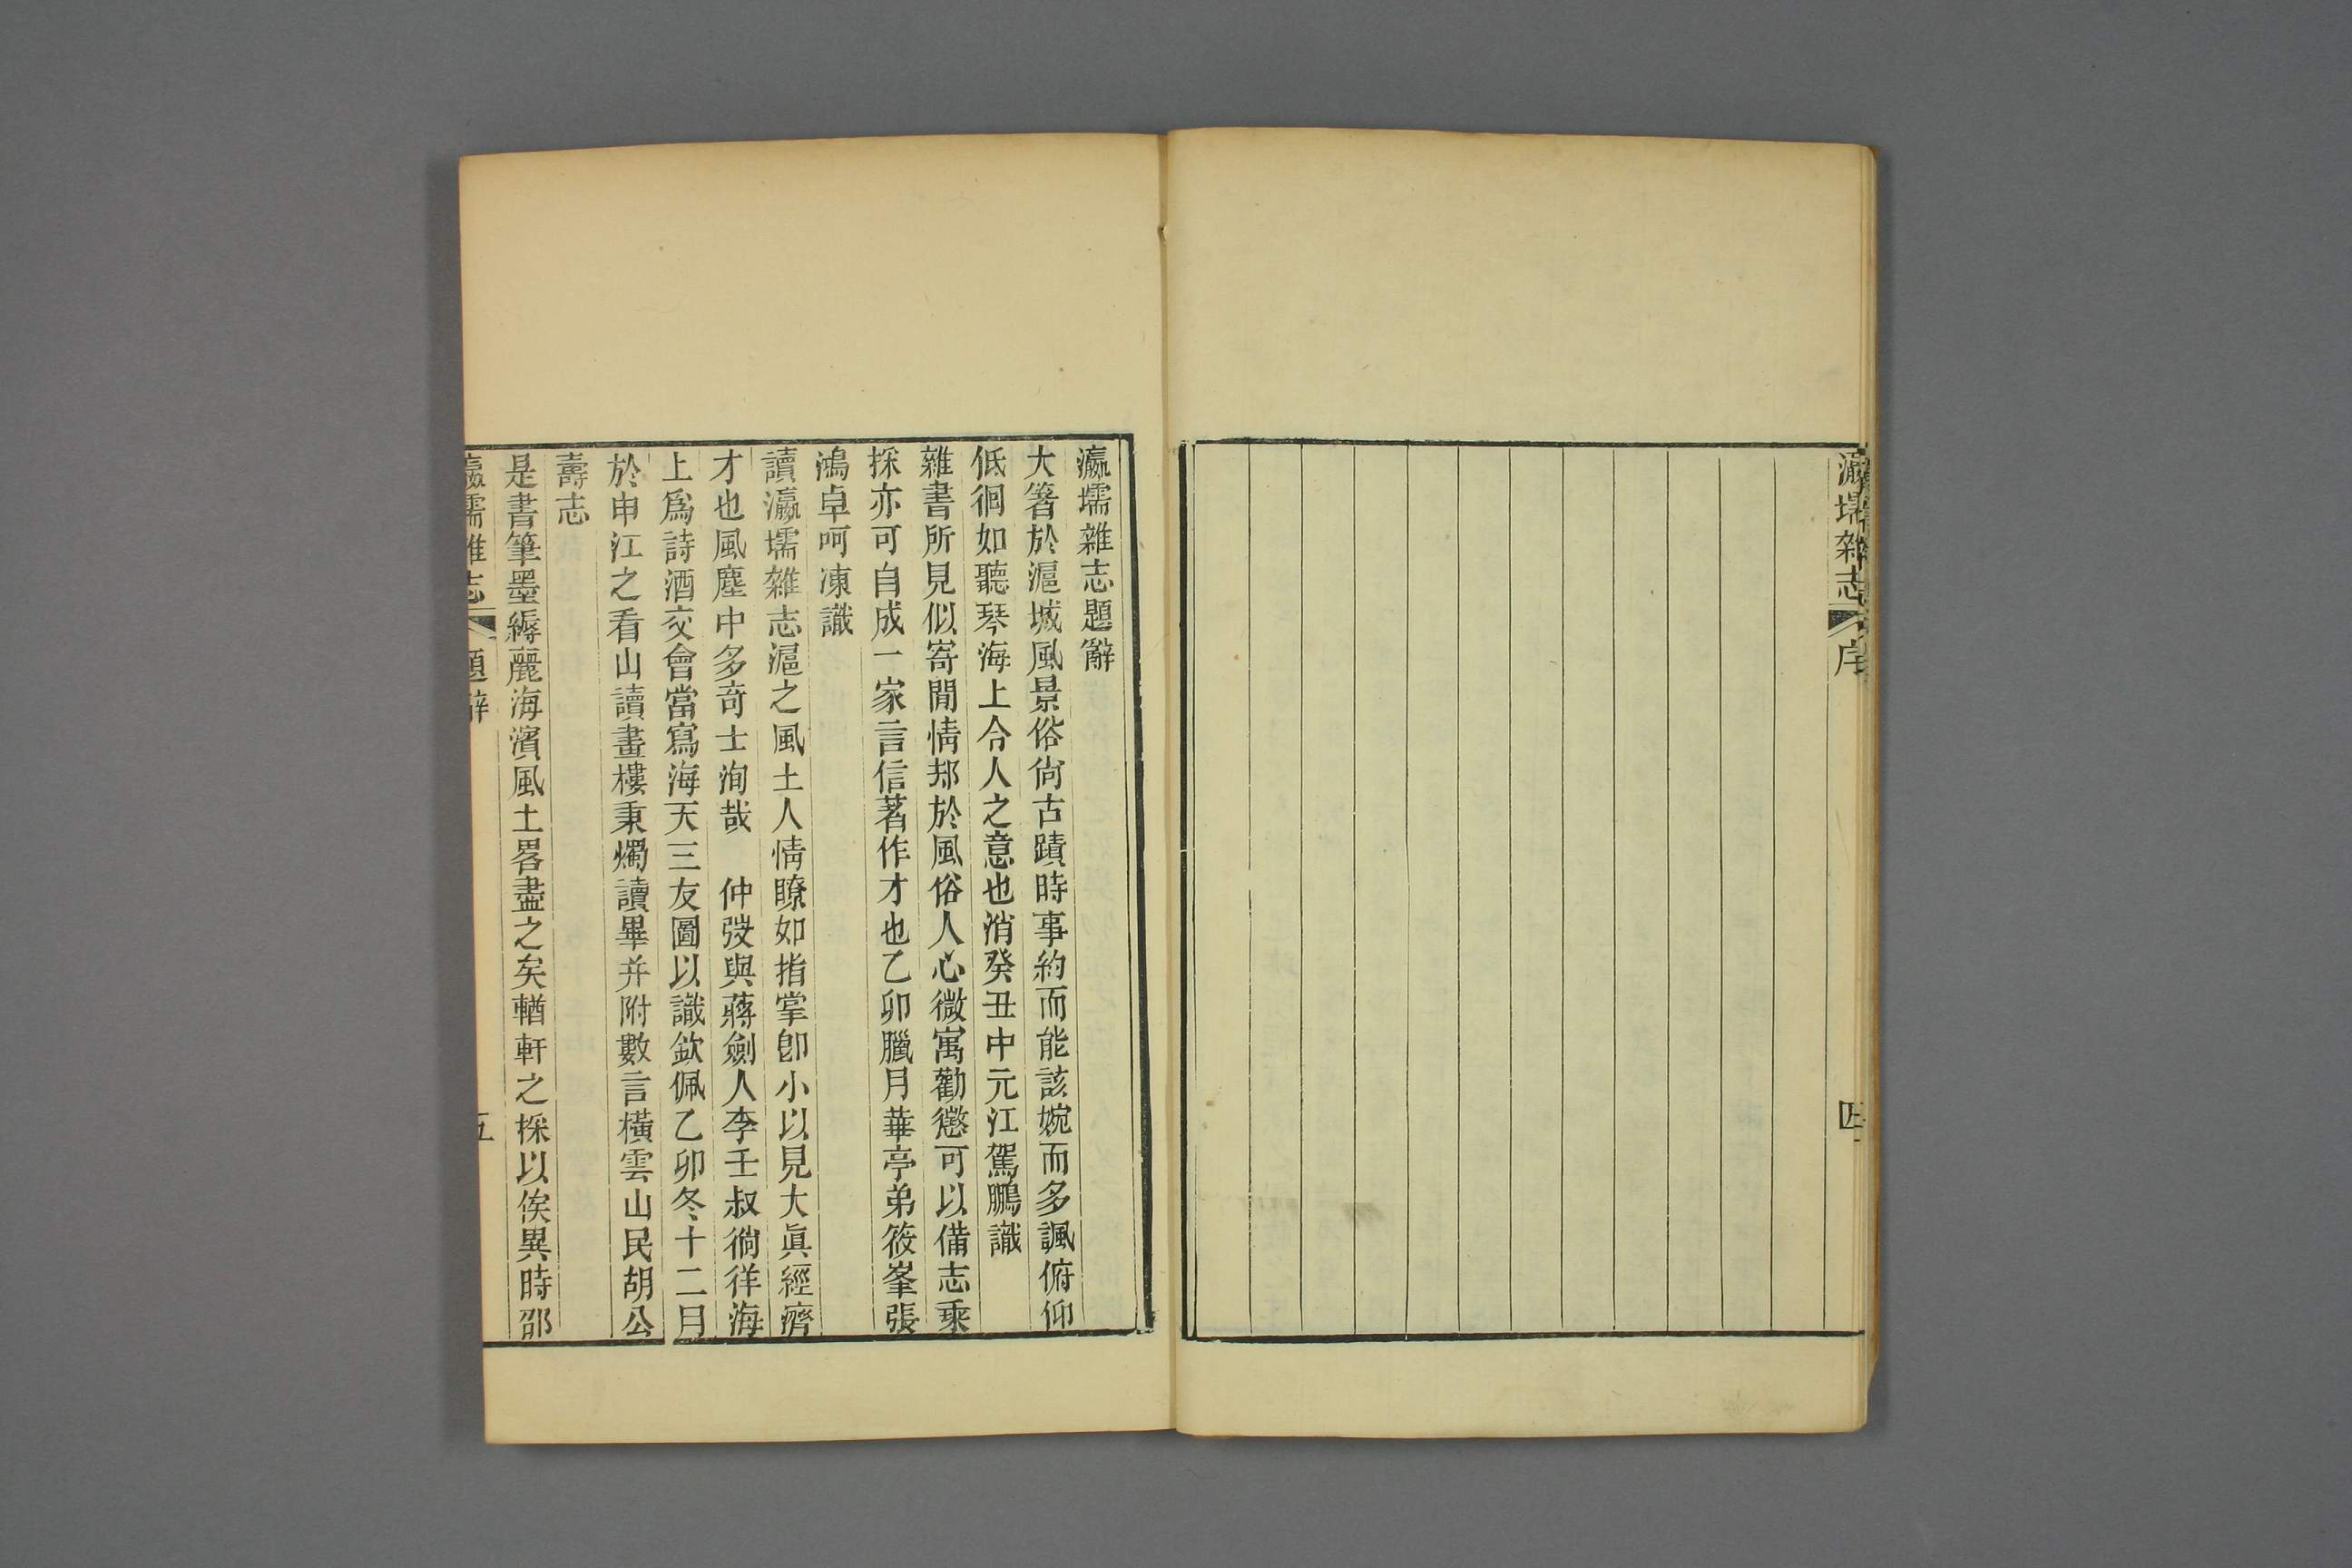 瀛壖雜志
序
四
瀛壖雜志題辭
大箸於滬城風景俗尙古蹟時事約而能該婉而多諷俯仰
低徊如聽琴海上令人之意也消癸丑中元江駕鵬識
雜書所見似寄閒情却於風俗人心微寓勸懲可以備志乘
採亦可自成一家言信著作才也乙卯臘月華亭弟筱峯張
鴻卓呵凍識
讀瀛壖雜志滬之風土人情瞭如指掌卽小以見大眞經濟
才也風塵中多奇士洵哉　仲弢與蔣劍人李壬叔徜徉海
上爲詩酒交會當寫海天三友圖以識欽佩乙卯冬十二月
於申江之看山讀畫樓秉燭讀畢并附數言橫雲山民胡公
壽志
是書筆墨縟麗海濱風土畧盡之矣輶軒之採以俟異時邵
瀛壖雜志
題辭
五